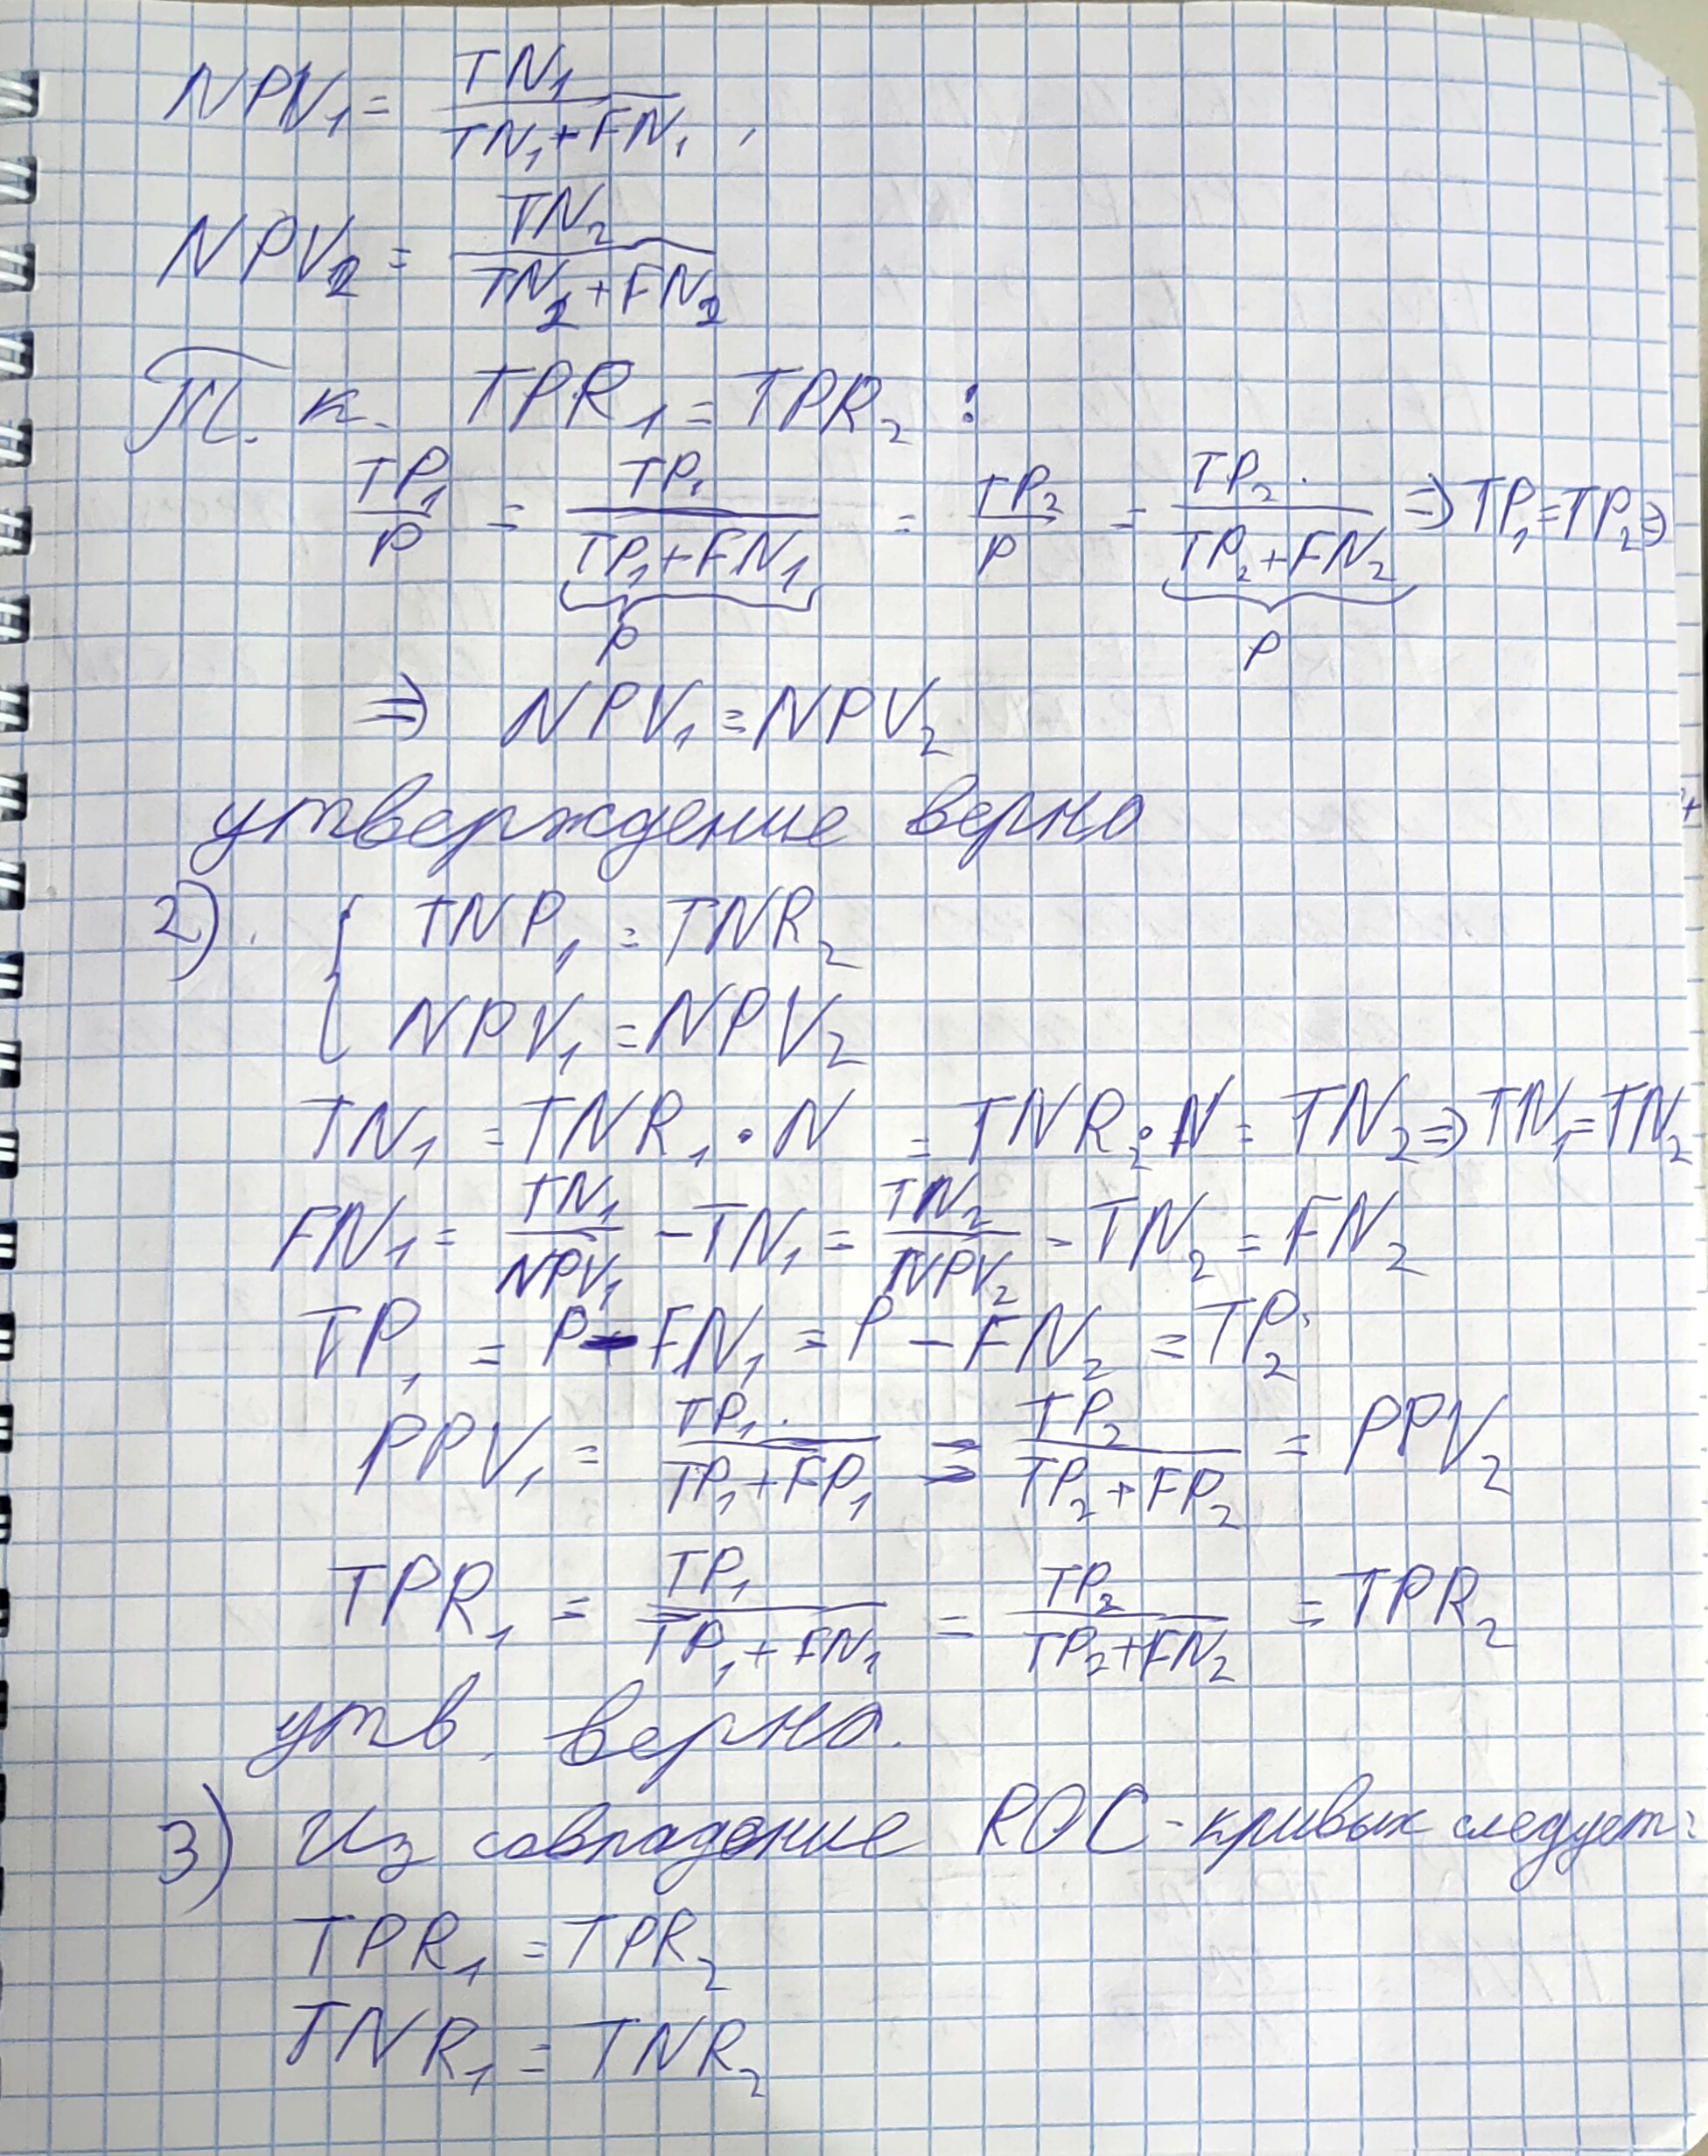 NPV₁ = TN₁ / (TN₁ + FN₁) ,
NPV₂ = TN₂ / (TN₂ + FN₂)
Т. к. TPR₁ = TPR₂ :
TP₁ / P = TP₁ / (TP₁ + FN₁) = TP₂ / P = TP₂ / (TP₂ + FN₂) ⇒ TP₁ = TP₂ ⇒
P P
⇒ NPV₁ = NPV₂
утверждение верно
2) { TNP₁ = TNR₂
NPV₁ = NPV₂
TN₁ = TNR₁ · N = TNR₂ · N = TN₂ ⇒ TN₁ = TN₂
FN₁ = TN₁ / NPV₁ − TN₁ = TN₂ / NPV₂ − TN₂ = FN₂
TP₁ = P − FN₁ = P − FN₂ = TP₂
PPV₁ = TP₁ / (TP₁ + FP₁) = TP₂ / (TP₂ + FP₂) = PPV₂
TPR₁ = TP₁ / (TP₁ + FN₁) = TP₂ / (TP₂ + FN₂) = TPR₂
утв. верно.
3) Из совпадение ROC-кривых следует:
TPR₁ = TPR₂
TNR₁ = TNR₂